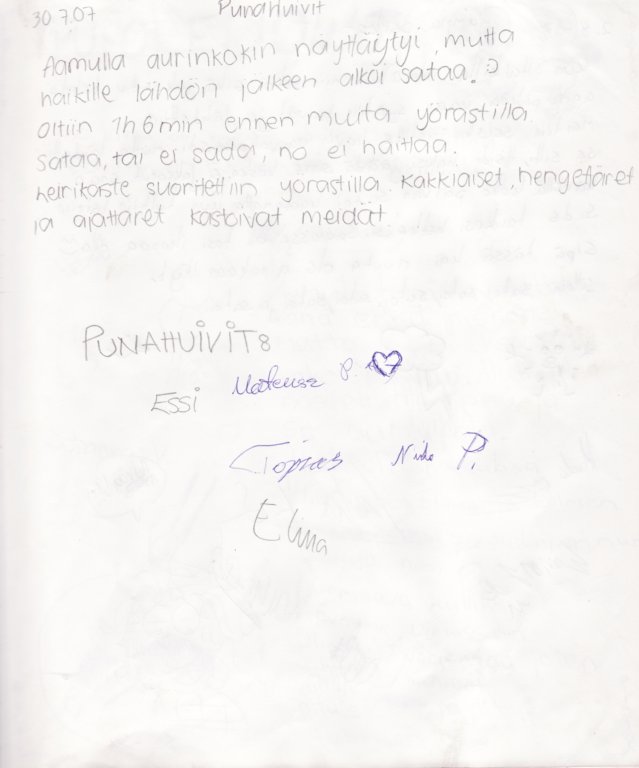 30 7.07 PunaHuivit
Aamulla aurinkokin näyttäytyi, mutta
haikille lähdön jälkeen alkoi sataa. :)
oltiin 1h 6min ennen muita yörastilla.
sataa, tai ei sada, no ei haittaa.
heinikaste suoritettiin yörastilla. kakkiaiset, hengettäret
ja ajattaret kastoivat meidät
PUNAHUIVIT8
Essi Mateusz P. ♡
Topias Niko P.
Elina